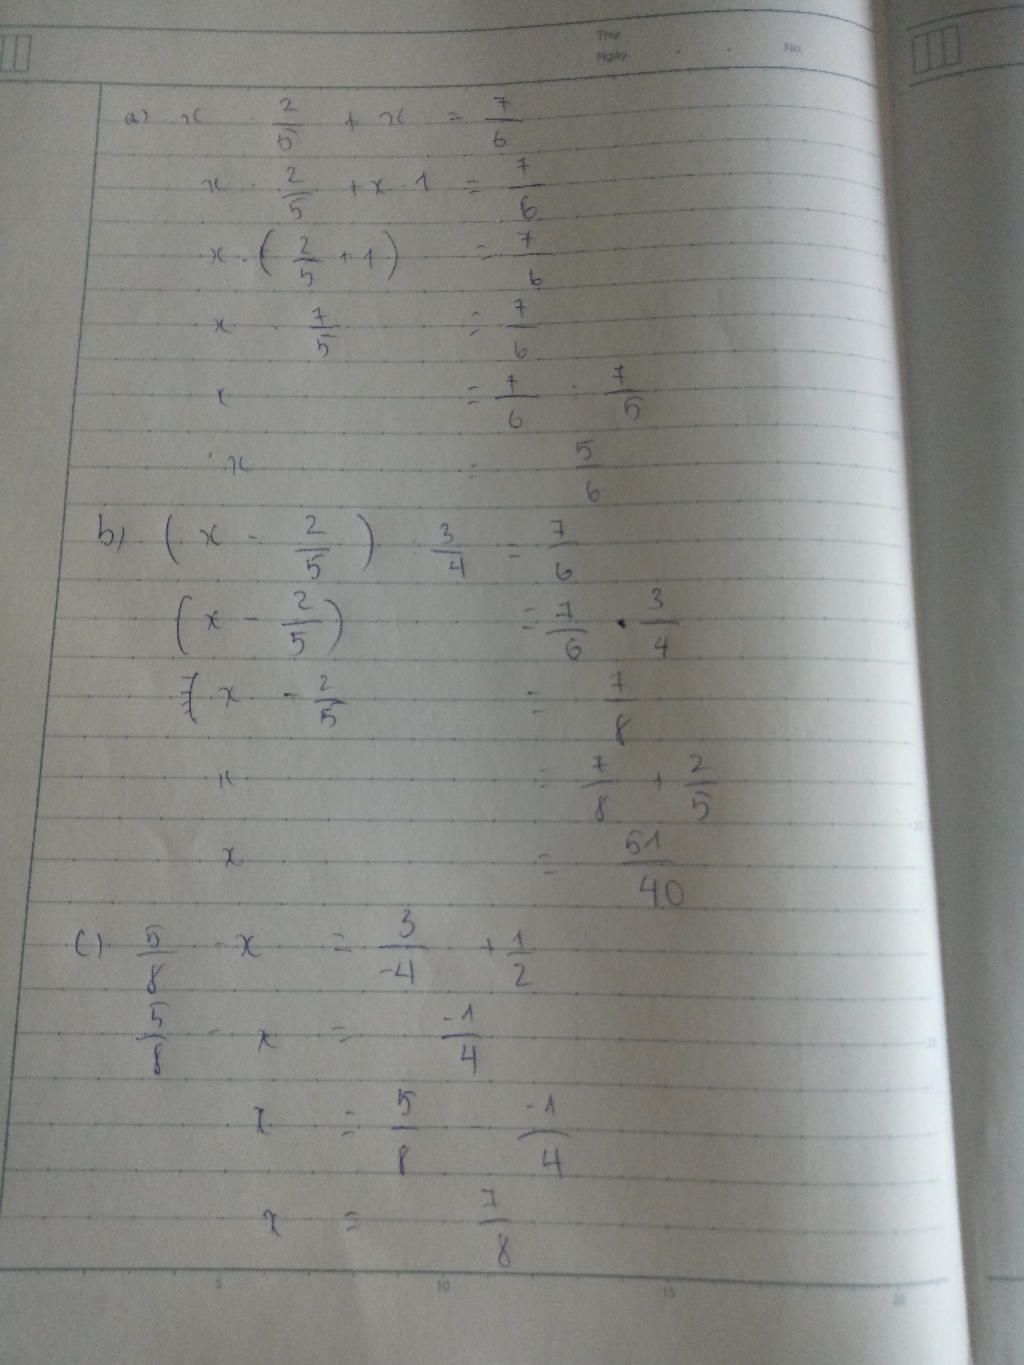 Thứ
Ngày . . No.
a) x . 2/5 + x = 7/6
x . 2/5 + x . 1 = 7/6
x . (2/5 + 1) = 7/6
x . 7/5 = 7/6
x = 7/6 : 7/5
x = 5/6
b) (x - 2/5) : 3/4 = 7/6
(x - 2/5) = 7/6 . 3/4
x - 2/5 = 7/8
x = 7/8 + 2/5
x = 51/40
c) 5/8 - x = 3/-4 + 1/2
5/8 - x = -1/4
x = 5/8 - -1/4
x = 7/8
5 10 15 20